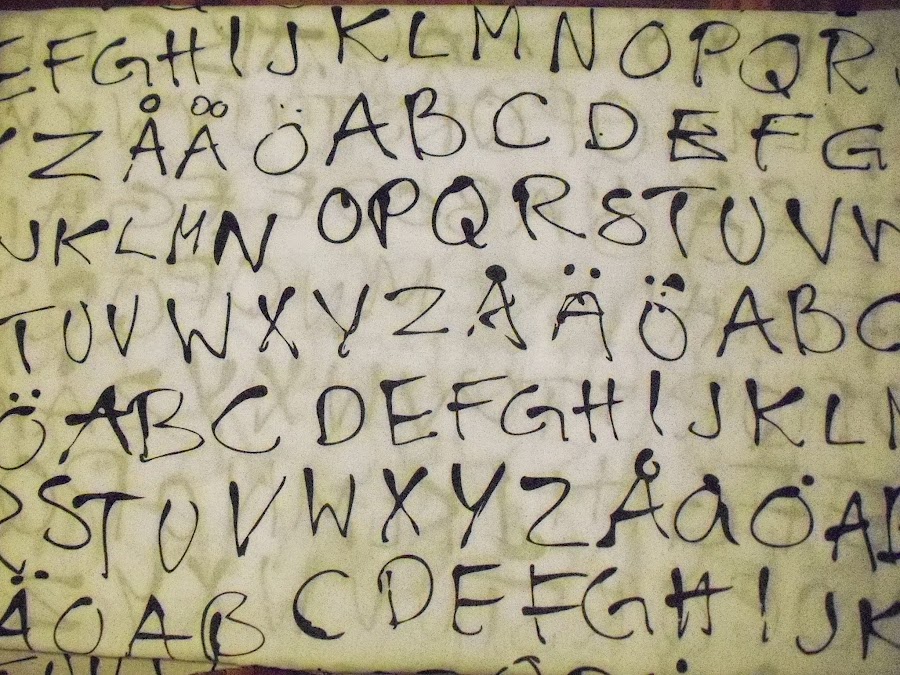 E F G H I J K L M N O P Q R
Y Z Å Ä Ö A B C D E F G
J K L M N O P Q R S T U V W
T U V W X Y Z Å Ä Ö A B C
Ö A B C D E F G H I J K L M
R S T U V W X Y Z Å Ä Ö A B
Ä O A B C D E F G H I J K